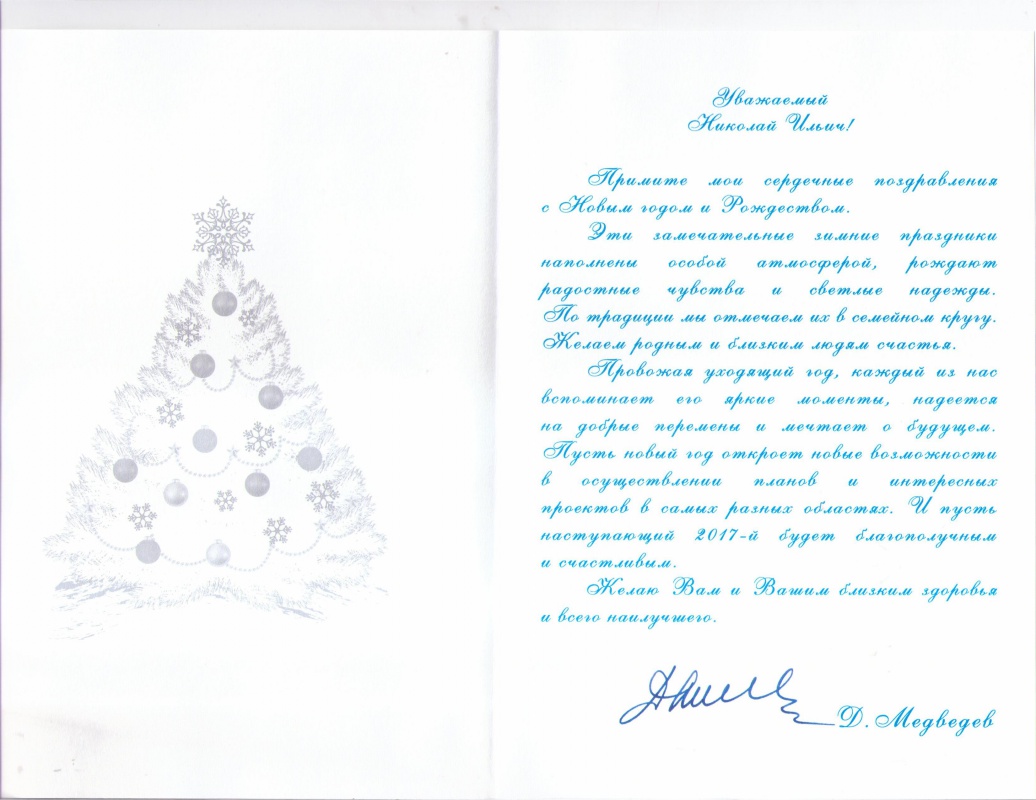 Уважаемый
Николай Ильич!
Примите мои сердечные поздравления
с Новым годом и Рождеством.
Эти замечательные зимние праздники
наполнены особой атмосферой, рождают
радостные чувства и светлые надежды.
По традиции мы отмечаем их в семейном кругу.
Желаем родным и близким людям счастья.
Провожая уходящий год, каждый из нас
вспоминает его яркие моменты, надеется
на добрые перемены и мечтает о будущем.
Пусть новый год откроет новые возможности
в осуществлении планов и интересных
проектов в самых разных областях. И пусть
наступающий 2017-й будет благополучным
и счастливым.
Желаю Вам и Вашим близким здоровья
и всего наилучшего.
Д. Медведев